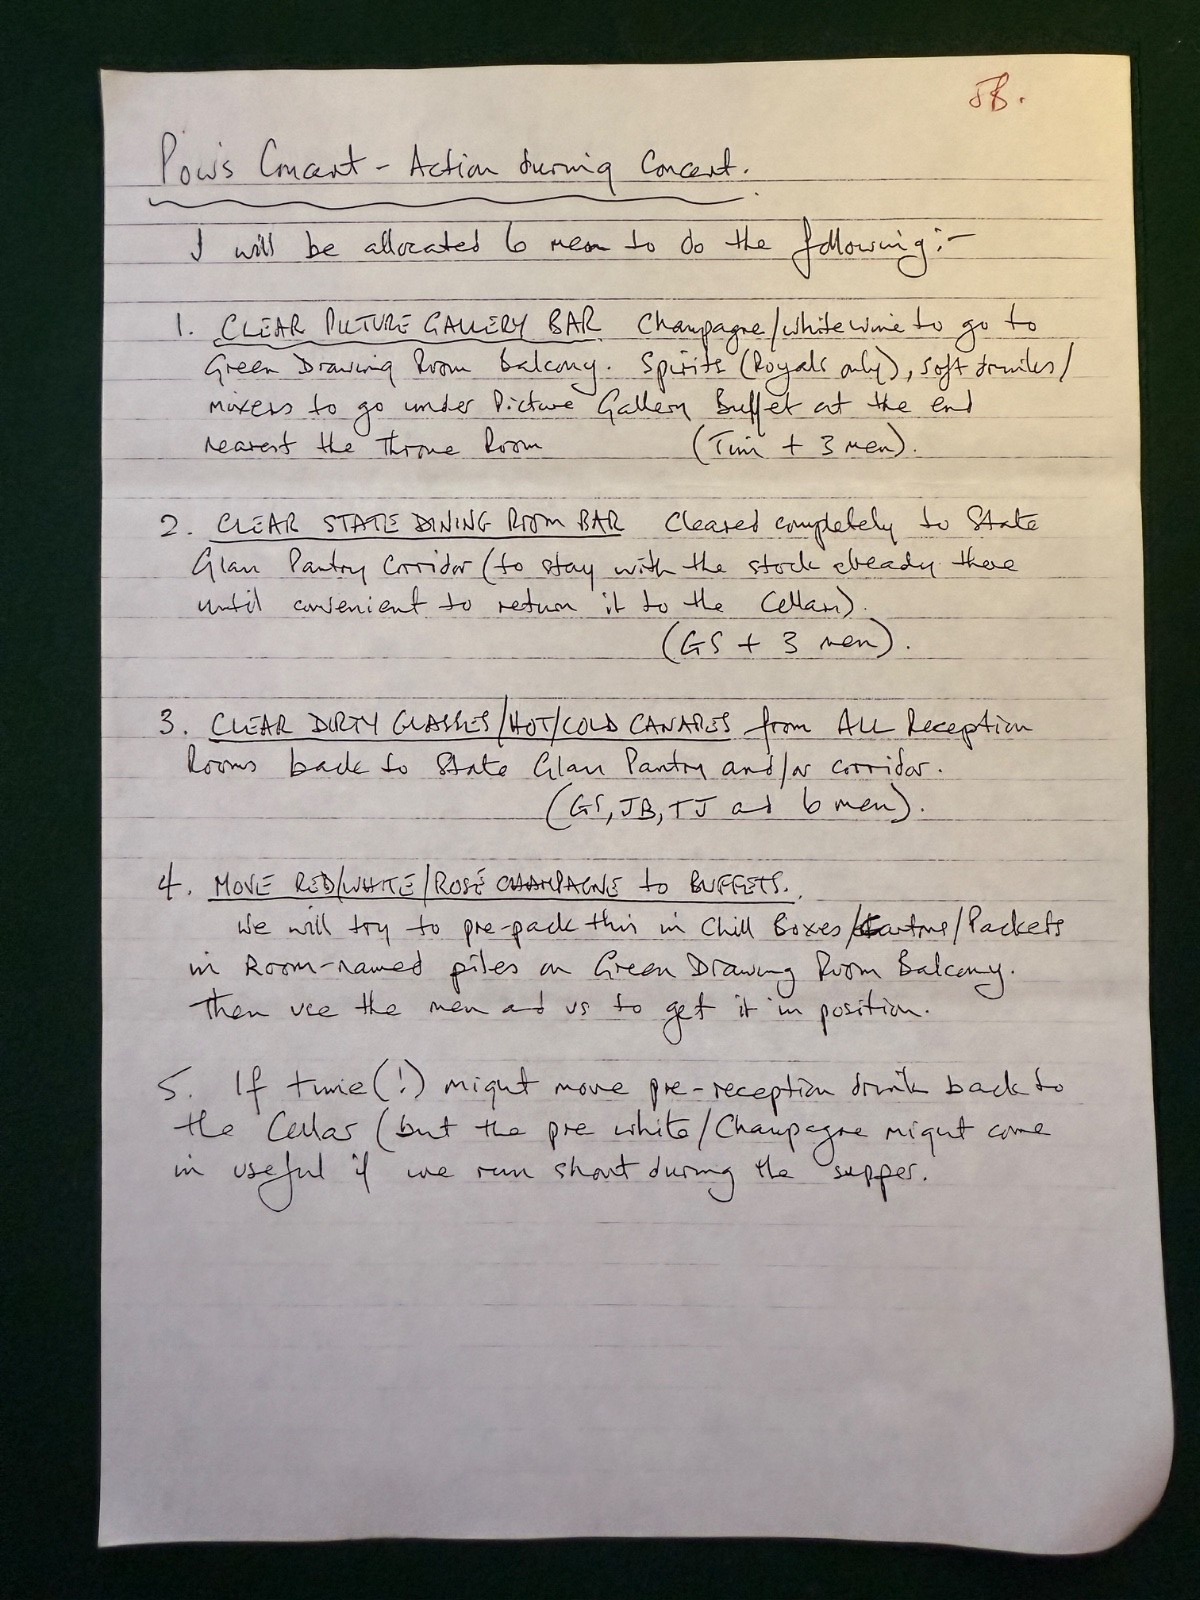 JB.
Pow's Concert - Action during Concert.
I will be allocated 6 men to do the following:-
1. CLEAR PICTURE GALLERY BAR Champagne/white wine to go to
Green Drawing Room Balcony. Spirits (Royals only), soft drinks/
mixers to go under Picture Gallery Buffet at the end
nearest the Throne Room (Tim + 3 men).
2. CLEAR STATE DINING ROOM BAR Cleared completely to State
Glass Pantry Corridor (to stay with the stock already there
until convenient to return it to the Cellars).
(GS + 3 men).
3. CLEAR DIRTY GLASSES/HOT/COLD CANAPES from ALL Reception
Rooms back to State Glass Pantry and/or corridor.
(GS, JB, TJ and 6 men).
4. MOVE RED/WHITE/ROSÉ CHAMPAGNE to BUFFETS.
We will try to pre-pack this in Chill Boxes/Cartons/Packets
in Room-named piles on Green Drawing Room Balcony.
Then use the men and us to get it in position.
5. If time (!) might move pre-reception drink back to
the Cellar (but the pre white/Champagne might come
in useful if we run short during the supper.